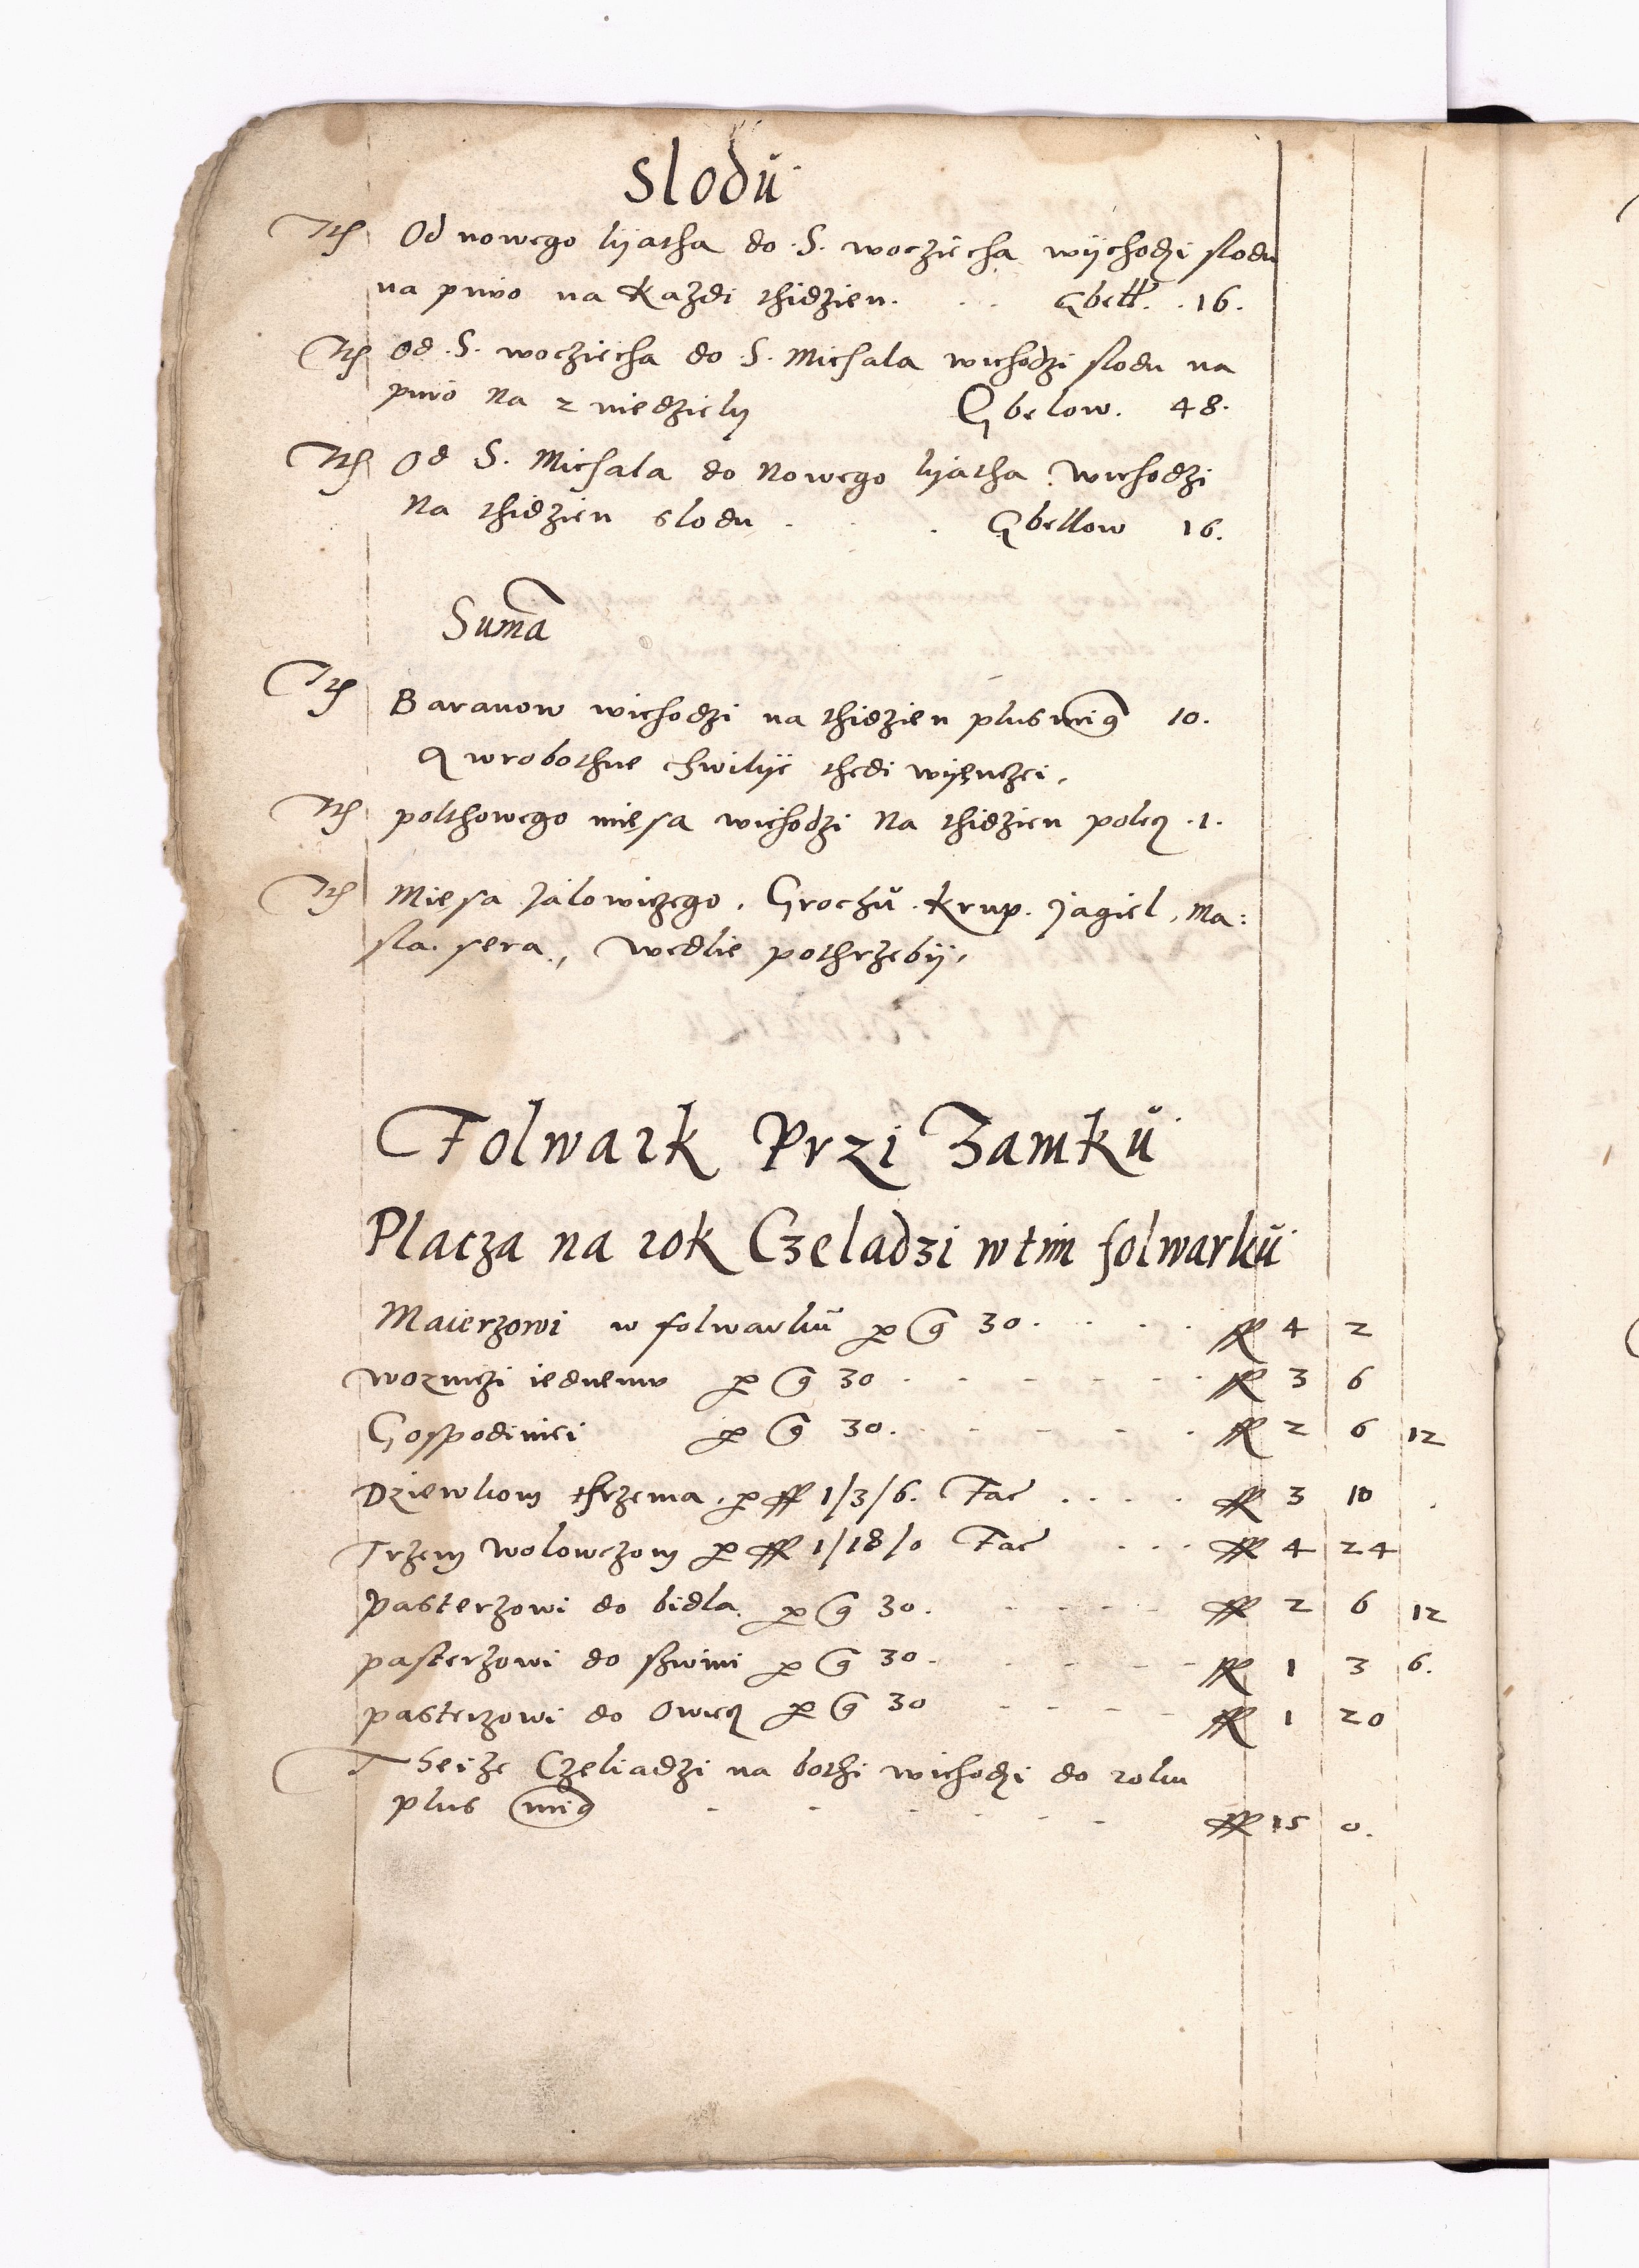 Slodu
Ite Od nowego lyatha do S. wocziecha wychodzi slodu
na piwo na Kazdi thidzien. . . Gbell. 16.
Ite Od S. wocziecha do S. Michala wichodzi slodu na
piwo Na 2 niedziely Gbelow. 48.
Ite Od S. Michala do Nowego lyatha wichodzi
Na thidzien slodu . . Gbellow 16.
Suma
Ite Baranow wichodzi na thidzien plus min9 10.
A wrobothne chwilye thedi
Ite polthowego miesa wichodzi Na thidzien polcz .1.
Ite Miesa Jalowiczego, Grochu. Krup. Jagiel, Ma:
sla. sera., wedlie pothrzeby,
Folwark Przi Zamku
Placza na rok Czeladzi w tim folwarku
Maierzowi w folwarku p g 30 . . . . ff 4 2
wozniczi iednemu p g 30 . - - - - . ff 3 6
Gospodinici p g 30. - - - . ff 2 6 12
Dziewkom thrzema, p ff 1/3/6. Fac . . . . ff 3 10 .
Trzem wolowczom p ff 1/18/0 Fac . . . ff 4 24
Pasterzowi do bidla. p g 30. - - - - ff 2 6 12
pasterzowi do swini p g 30. - - - - ff 1 3 6.
pasterzowi do Owiecz p g 30 - - - - ff 1 20
Theize Czeliadzi na bothi wichodzi do roku
plus min9 - - - - - - ff 15 0.